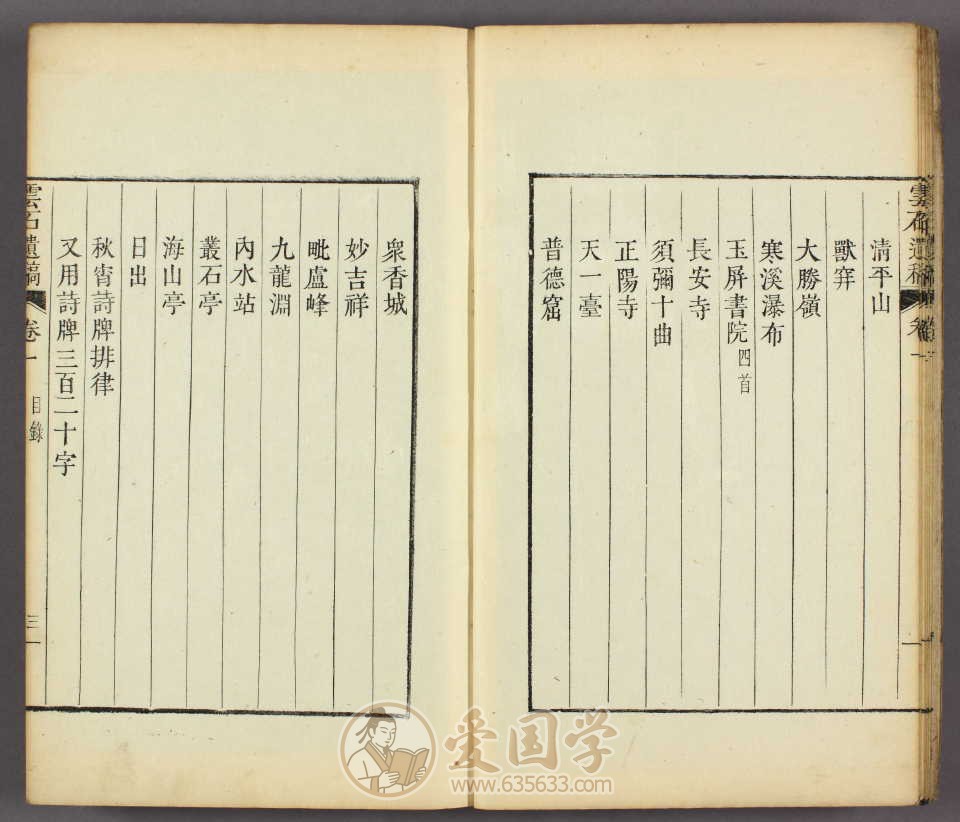 清平山
獸穽
大勝嶺
寒溪瀑布
玉屏書院四首
長安寺
須彌十曲
正陽寺
天一臺
普德窟
衆香城
妙吉祥
毗盧峰
九龍淵
內水站
叢石亭
海山亭
日出
秋宵詩牌排律
又用詩牌三百二十字
雲石遺稿 卷一 目錄 三
爱国学
www.635633.com